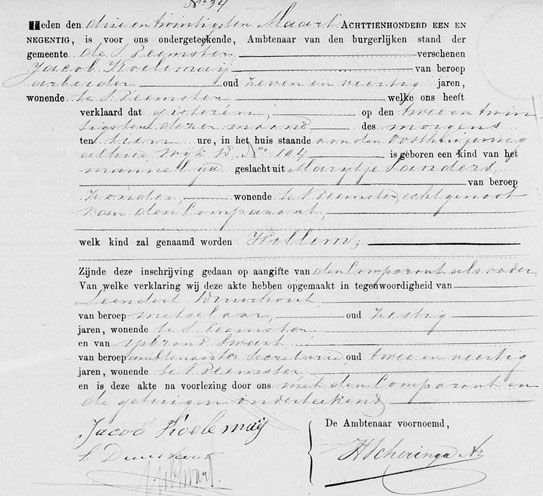 No. 39
Heden den drie en twintigsten Maart ACHTTIENHONDERD EEN EN
NEGENTIG, is voor ons ondergeteekende, Ambtenaar van den burgerlijken stand der
gemeente de Beemster verschenen
Jacob Koelemaij van beroep
arbeider oud zeven en veertig jaren,
wonende te Beemster welke ons heeft
verklaard dat gisteren op den twee en twin
tigsten dezer maand des morgens
ten tien ure, in het huis staande aan den Oosthuizerweg
alhier Wijk B No. 104 is geboren een kind van het
mannelijk geslacht uit Marijtje Sanders,
van beroep
zonder wonende te Beemster, echtgenoot
van den Comparant,
welk kind zal genaamd worden Willem,
Zijnde deze inschrijving gedaan op aangifte van den Comparant als vader
Van welke verklaring wij deze akte hebben opgemaakt in tegenwoordigheid van
Leendert
van beroep metselaar, oud zestig
jaren, wonende te Beemster
en van IJsbrand Swart
van beroep ambtenaar ter Secretarie oud twee en veertig
jaren, wonende te Beemster
en is deze akte na voorlezing door ons met den Comparant en
de getuigen onderteekend
Jacob Koelemaij
De Ambtenaar voornoemd,
H Scheringa Az